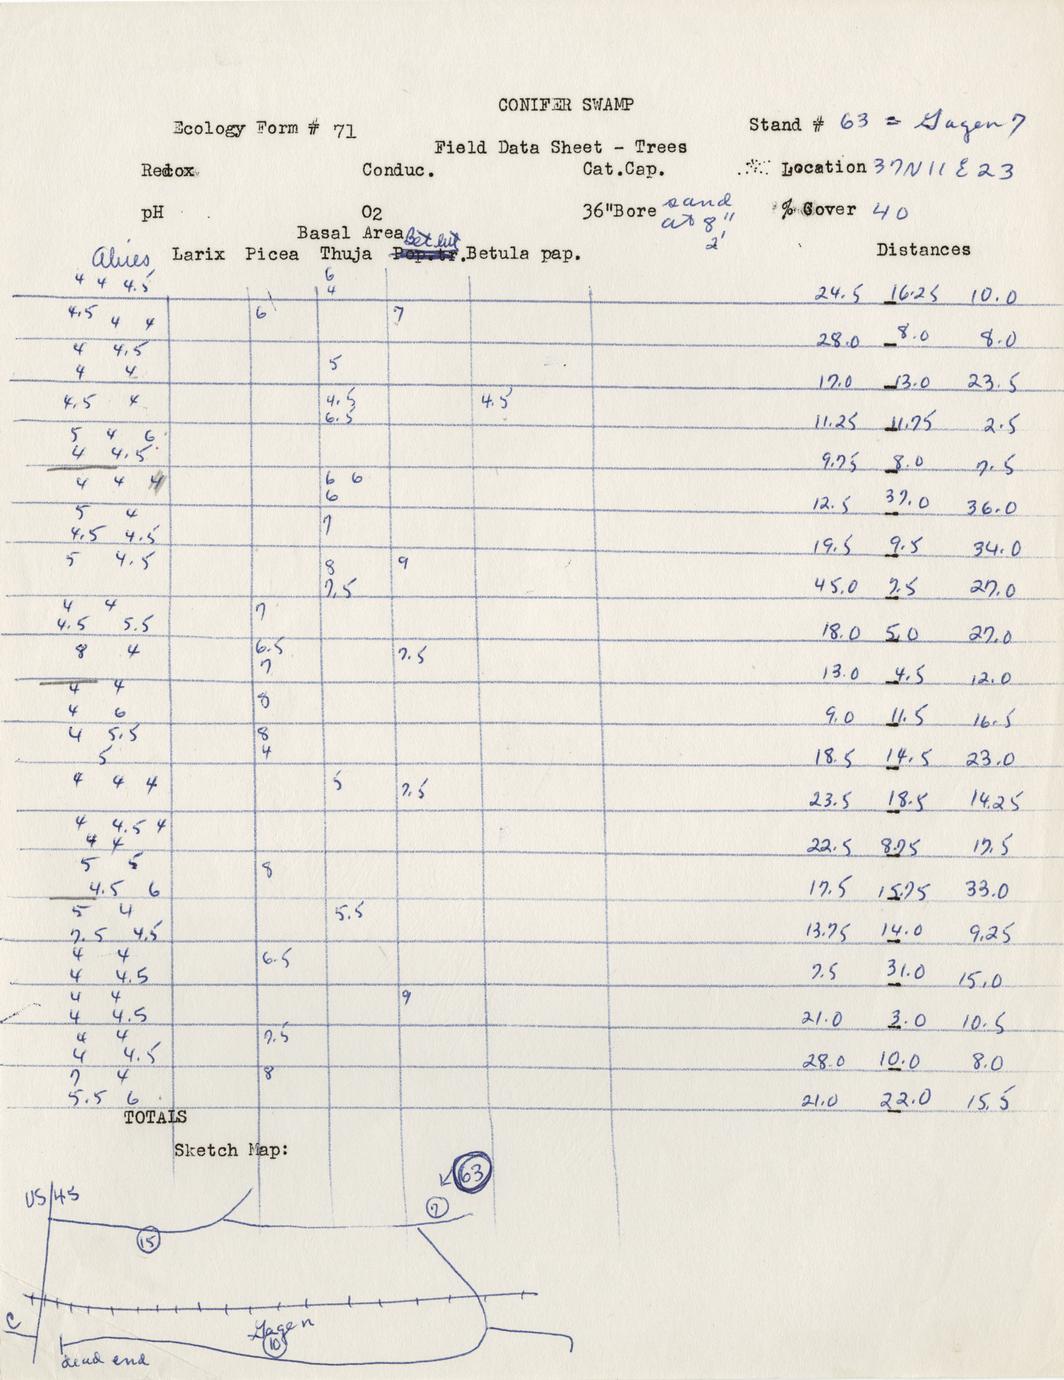 CONIFER SWAMP
Ecology Form # 71
Stand # 63 = Gagen 7
Field Data Sheet - Trees
Redox Conduc. Cat.Cap. Location 37N11E23
pH O2 36"Bore sand at 8" 2' % Cover 40
Basal Area
Abies Larix Picea Thuja Bet lut Betula pap. Distances
4 4 4.5 6
4 24.5 16.25 10.0
4.5 4 4 6 7 28.0 8.0 8.0
4 4.5
4 4 5 17.0 13.0 23.5
4.5 4 4.5 4.5
6.5 11.25 11.75 2.5
5 4 6
4 4.5 9.75 8.0 7.5
4 4 4 6 6
6 12.5 37.0 36.0
5 4
4.5 4.5 7 19.5 9.5 34.0
5 4.5 8 9
7.5 45.0 7.5 27.0
4 4 7
4.5 5.5 18.0 5.0 27.0
8 4 6.5 7.5
7 13.0 4.5 12.0
4 4 8
4 6 9.0 11.5 16.5
4 5.5 8
5 4 18.5 14.5 23.0
4 4 4 5 7.5 23.5 18.5 14.25
4 4.5 4
4 4 22.5 8.75 17.5
5 5 8
4.5 6 17.5 15.75 33.0
5 4 5.5
7.5 4.5 13.75 14.0 9.25
4 4 6.5
4 4.5 7.5 31.0 15.0
4 4 9
4 4.5 21.0 3.0 10.5
4 4 7.5
4 4.5 28.0 10.0 8.0
7 4 8
5.5 6 21.0 22.0 15.5
TOTALS
Sketch Map:
63
US 45
7
15
C
Gagen
10
dead end